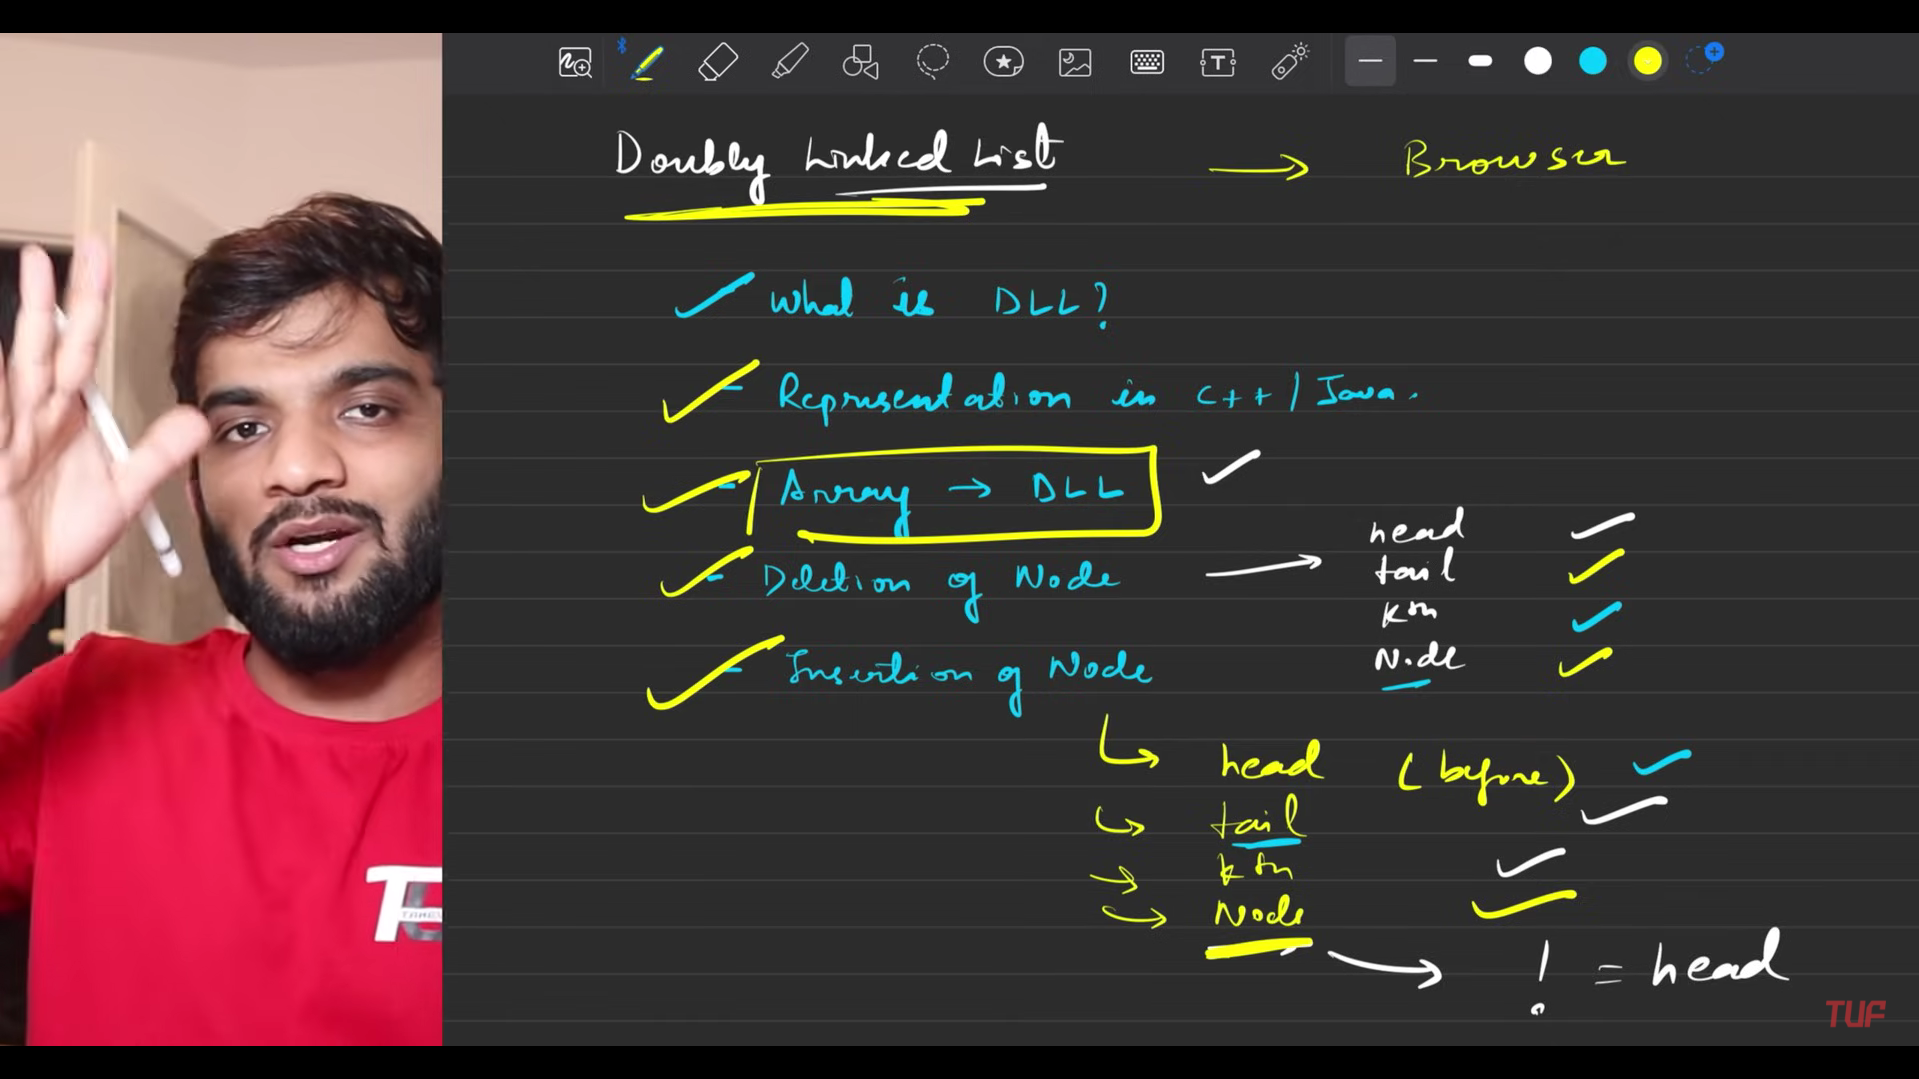 Doubly Linked List → Browser
What is DLL?
- Representation in C++ / Java.
- Array → DLL
- Deletion of Node →
head
tail
kth
Node
- Insertion of Node
↳ head (before)
↳ tail
→ kth
↳ Node
→ ! = head
TUF